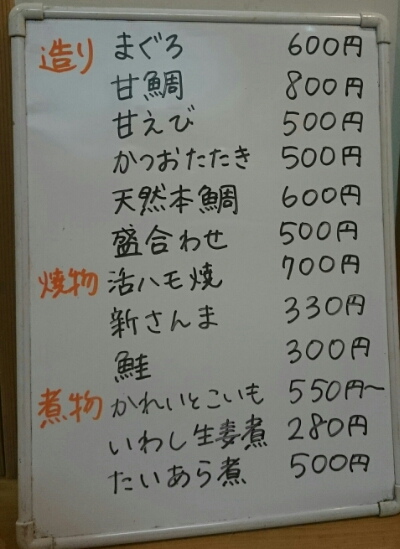 造り まぐろ 600円
甘鯛 800円
甘えび 500円
かつおたたき 500円
天然本鯛 600円
盛合わせ 500円
焼物 活ハモ焼 700円
新さんま 330円
鮭 300円
煮物 かれいとこいも 550円〜
いわし生姜煮 280円
たいあら煮 500円